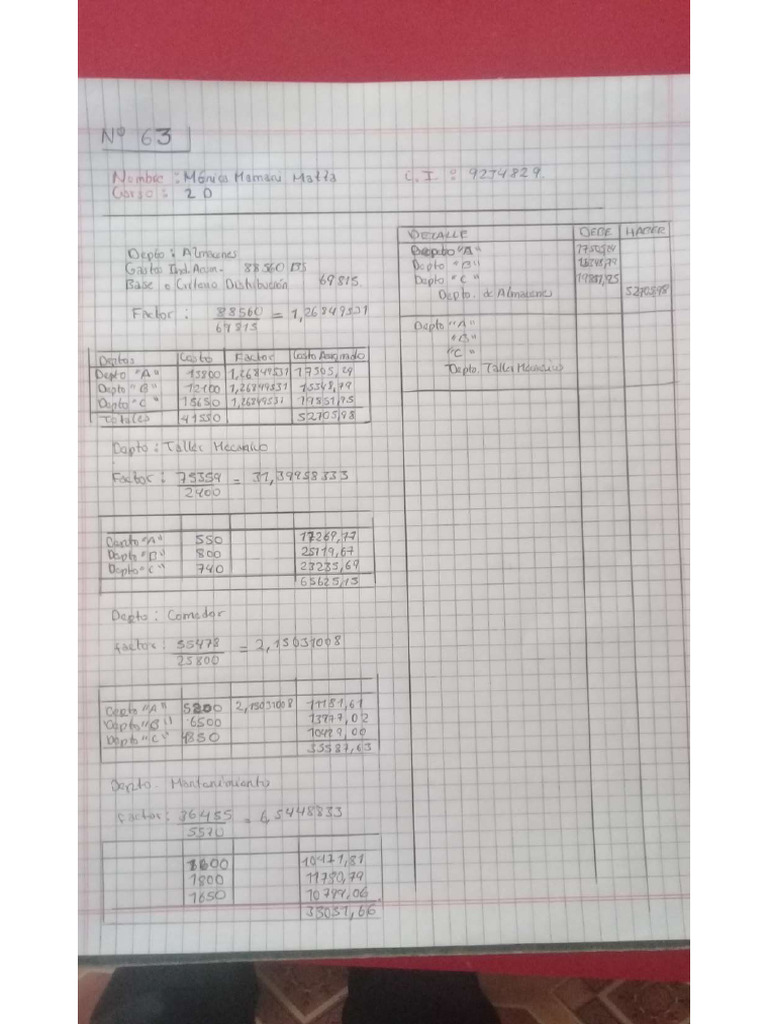 Nº 63
Nombre : Mónica Mamani Matta C.I. : 9274829.
Curso : 2 D
Depto : Almacenes
Gastos Ind. Acum- 88560 Bs
Base o Criterio Distribución 69815.
Factor : 88560 = 1,26849531
69815
Deptos Costo Factor Costo Asignado
Depto "A" 13800 1,26849531 17505,24
Depto "B" 12100 1,26849531 15348,79
Depto "C" 15650 1,26849531 19851,95
Totales 41550 52705,98
Depto : Taller Mecanico
Factor : 75359 = 31,39958333
2400
Depto "A" 550 17269,77
Depto "B" 800 25119,67
Depto "C" 740 23235,69
65625,13
Depto : Comedor
factor : 55478 = 2,15031008
25800
Depto "A" 5200 2,15031008 11181,61
Depto "B" 6500 13977,02
Depto "C" 4850 10429,00
35587,63
Depto. Mantenimiento
Factor : 36455 = 6,5448833
5570
1600 10471,81
1800 11780,79
1650 10799,06
33051,66
DETALLE DEBE HABER
Depto "A"
Depto "B" 15348,79
Depto "C" 19851,95
Depto. de Almacenes 52705,98
Depto "A"
"B"
"C"
Depto. Taller Mecanico